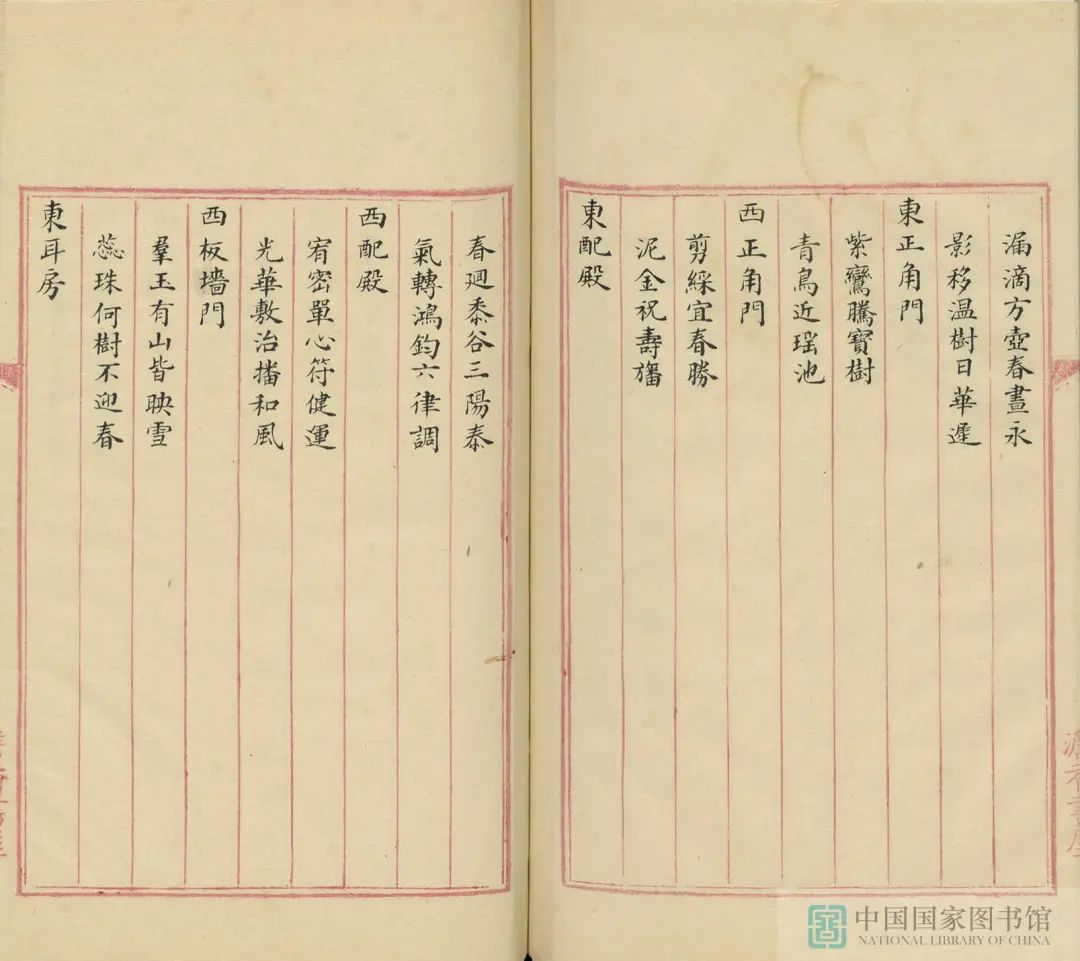 漏滴方壺春晝永
影移温樹日華遲
東正角門
紫鸞騰寶樹
青鳥近瑶池
西正角門
剪綵宜春勝
泥金祝壽旛
東配殿
春廻黍谷三陽泰
氣轉鴻鈞六律調
西配殿
宥密單心符健運
光華敷治播和風
西板墻門
羣玉有山皆映雪
蕊珠何樹不迎春
東耳房
中国国家图书馆
NATIONAL LIBRARY OF CHINA